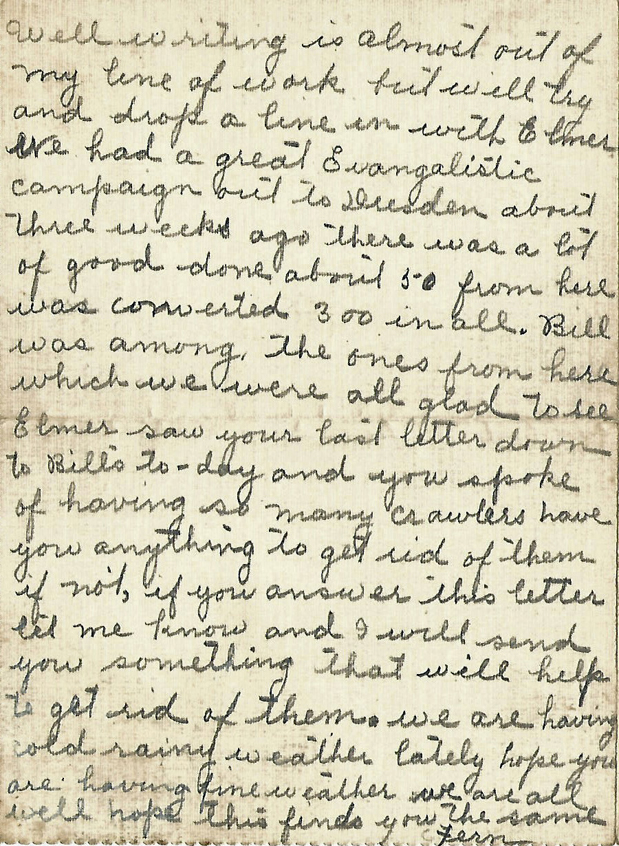 Well writing is almost out of
my line of work but will try
and drop a line in with Elmer
We had a great Evangalistic
campaign out to Dresden about
three weeks ago there was a lot
of good done about 50 from here
was converted 300 in all. Bill
was among, the ones from here
which we were all glad to see
Elmer saw your last letter down
to Bills to-day and you spoke
of having so many crawlers have
you anything to get rid of them
if not, if you answer this letter
let me know and I will send
you something that will help
to get rid of them. we are having
cold rainy weather lately hope you
are having fine weather we are all
well hope this finds you the same
Fern